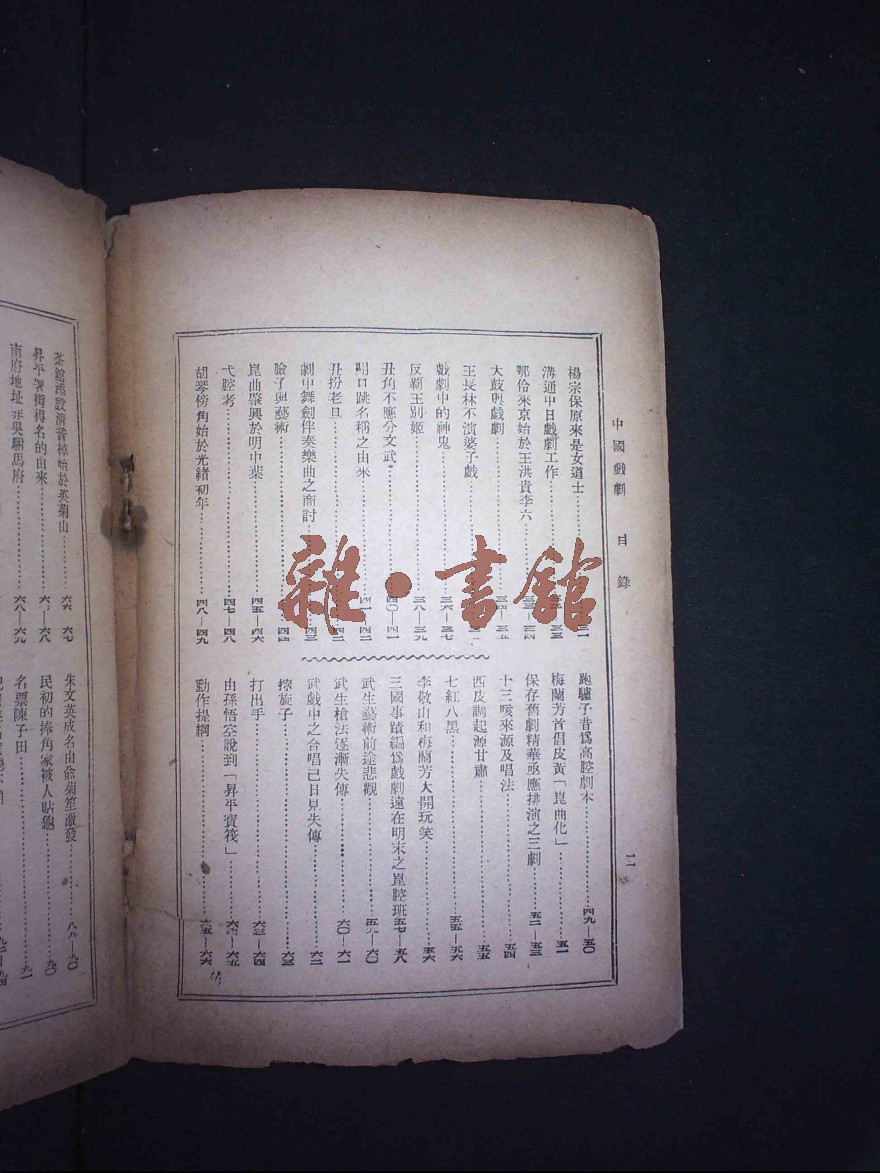 中國戲劇 目錄
二
楊宗保原來是女道士
溝通中日戲劇工作
鄂伶來京始於王洪貴李六
大鼓與戲劇
王長林不演婆子戲
戲劇中的神鬼……三六—三七
反霸王別姬……三八—三九
丑角不應分文武……四〇—四一
開口跳名稱之由來……四一—四二
丑扮老旦
劇中舞劍伴奏樂曲之商討
臉子與藝術
崑曲發興於明中葉……四五—四六
弋腔考……四七—四八
胡琴傍角始於光緒初年……四八—四九
跑驢子昔爲高腔劇本……四九—五〇
梅蘭芳首倡皮黃「崑曲化」……五一
保存舊劇精華亟應排演之三劇……五二—五三
十三咳來源及唱法……五四
西皮調起源甘肅……五五
七紅八黑……五五—五六
李敬山和梅蘭芳大開玩笑……五六
三國事蹟編爲戲劇遠在明末之崑腔班……五七—五八
武生藝術前途悲觀……五九—六〇
武生槍法逐漸失傳……六〇—六一
武戲中之合唱已日見失傳……六二
擰旋子……六三
打出手……六三—六四
由孫悟空說到「昇平寶筏」……六四—六五
動作提綱……六五—六六
茶館添設清音棹始於英菊山……六六—六七
昇平署街得名的由來……六八
南府地址非吳駙馬府……六八—六九
朱文英成名由俞菊笙激發……八九—九〇
民初的捧角家被人貼匏……九〇
名票陳子田……九一
雜·書館